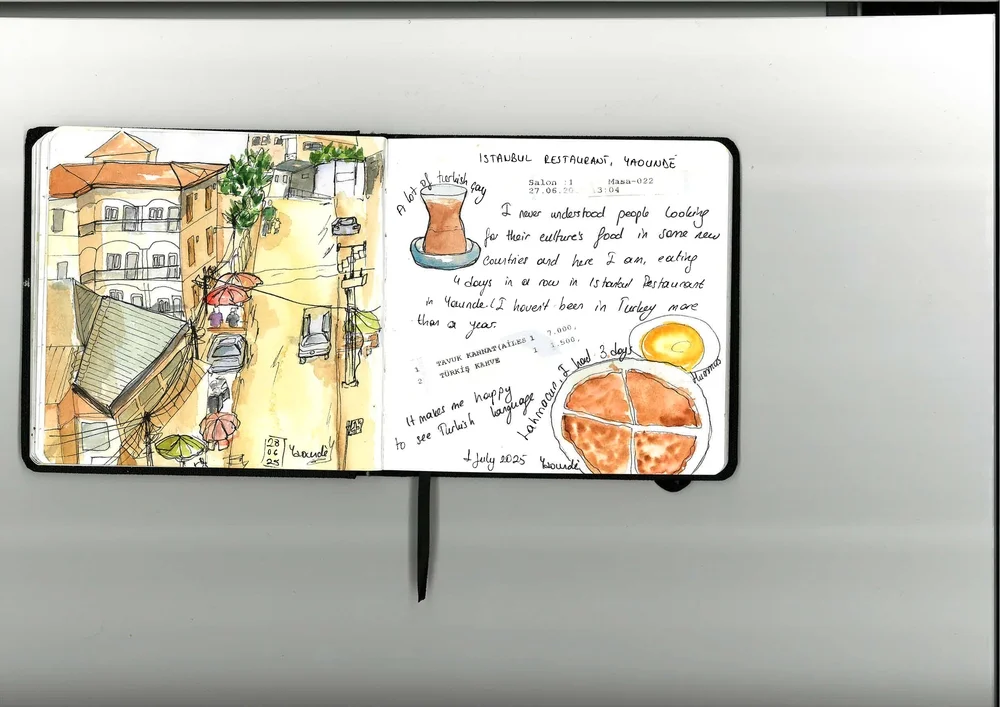 28
06
25
Yaoundé
ISTANBUL RESTAURANT, YAOUNDÉ
Salon :1 Masa-022
27.06.20 13:04
A lot of turkish çay
I never understood people looking
for their culture's food in some new
countries and here I am, eating
4 days in a row in Istanbul Restaurant
in Yaounde. (I haven't been in Turkey more
than a year.
1 TAVUK KANNAT(AİLES 1 7.000,
2 TÜRKİŞ KAHVE 1 1.500,
It makes me happy
to see Turkish language
Lahmacun, I had 3 days
Hummus
1 July 2025 Yaoundé